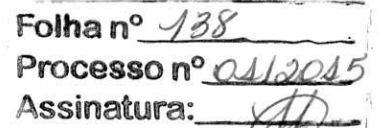 Folha nº 138
Processo nº 01/2015
Assinatura: